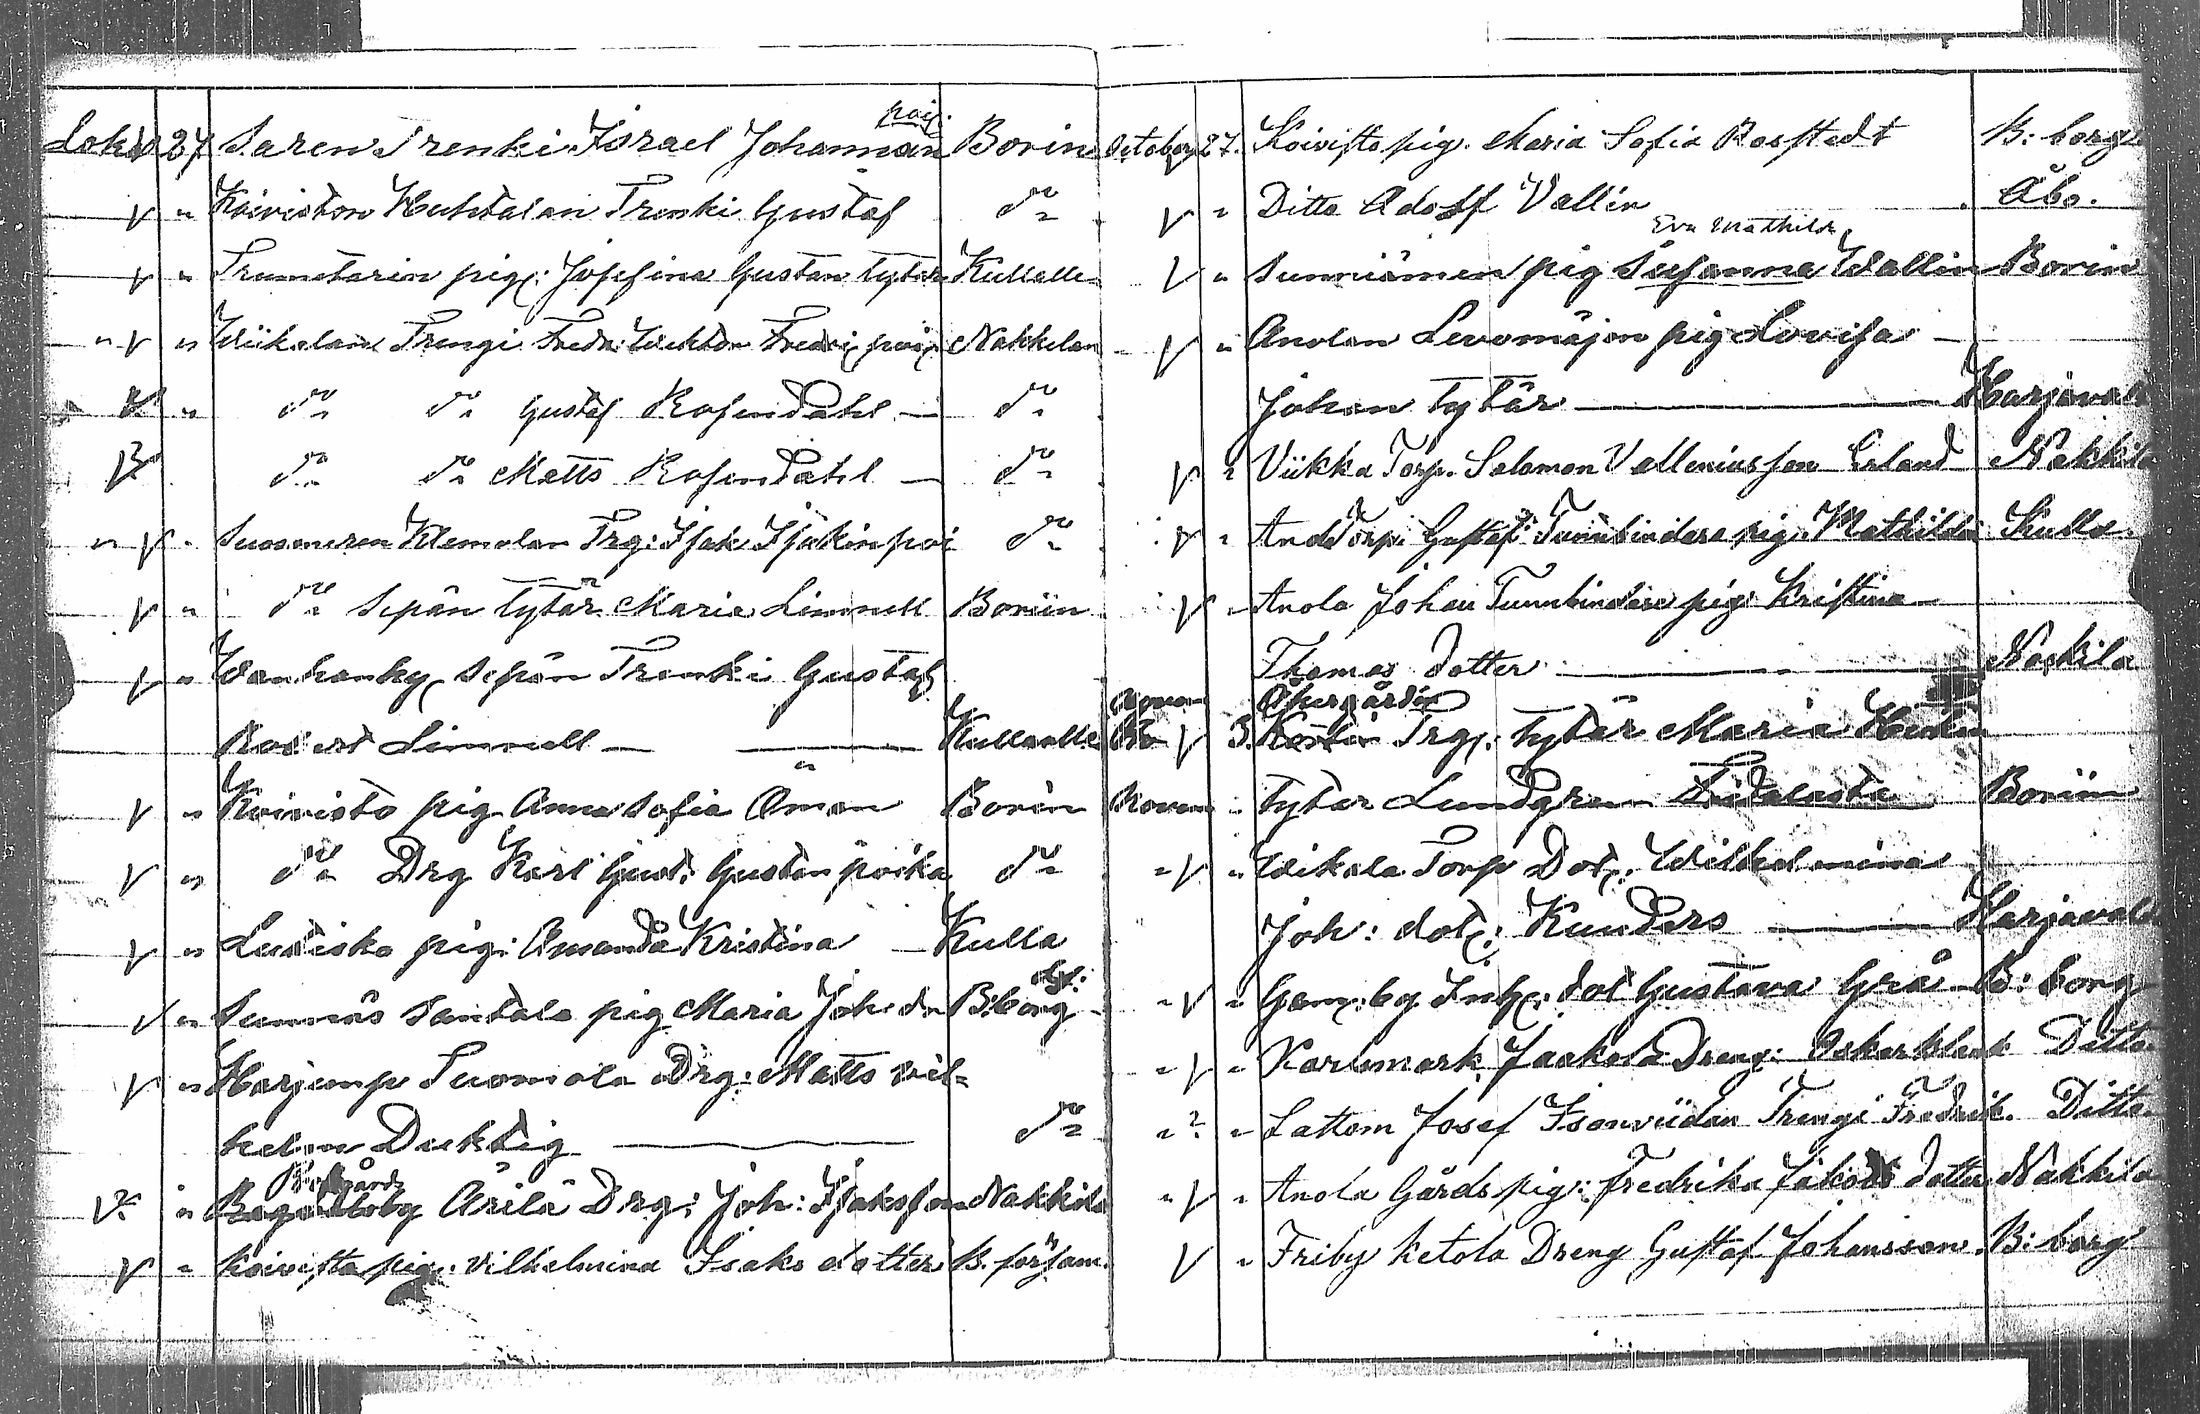 Lok. 27 Saren Trenki Israel Johannan poij. Borin
V " Koiviston Huhtalan Trenki Gustaf do
V " Trumetarin pig: Josefina Gustan tytar Kullalle
" V " Wiikalan Trengi Fredr: Fredri poij Nakkilan
V " do do Gustaf Rosendahl — do
V do do Matts Rosendahl — do
" V " Suosmeren Klemolan Trg: Isak Isakin poi do
V " do Sepän tytär Maria Linnell Boriin
V " Wanhanky Sepän Trenki Gustaf
Robert Linnell — — Kullaalle
V " Koivisto pig Anna Sofia Öman Borin
V " do Drg Karl Gust: Gustan poika do
V " Ludiska pig: Amanda Kristina — Kulla
V " Sunnäs Santala pig Maria Joh: dr B:borg
V " Harjunp Tuomola Drg: Matts Vil=
helm Duktig — do
V " Arilä Drg: Joh: Isaksson Nakkila
V " Koivisto pig. Vilhelmina Isaks dotter B. försam.
October 27. Koivisto pig. Maria Sofia Rosstedt B: borg
V " Ditto Adolf Vallin Åbo.
Eva Mathilda
V " Sunniämen pig Susanna Wallin Borin
V " Anolan Levomäjon pig Lovisa —
Johan tytär — Harjavala
V " Viikka Torp. Salomon Valleniusson Erland Nakkila
V " And Torp. Gustaf Tunnbindare pig. Mathilda Kulla.
V " Anola Johan Tunnbindare pig. Kristina —
Thomas dotter — Nakkila
Åkergårdin
V 3. Trg: tytär Maria
tytär Lundgren Boriin
" V " Wikala Torp Dot: Wilhelmina
Joh: dot: Kunders — Harjavala
" V " Gam:by Inh: dot Gustava Grå B: borg
" V " Karlsmark Jaakola Dreng: Oskar Ditto
" ? " Lattom Josef Isonviidan Trengi Fredrik. Ditto.
" V " Anola Gårds pig: Fredrika Jakobs dotter Nakkila
V " Friby Ketola Dreng Gustaf Johansson. B: borg